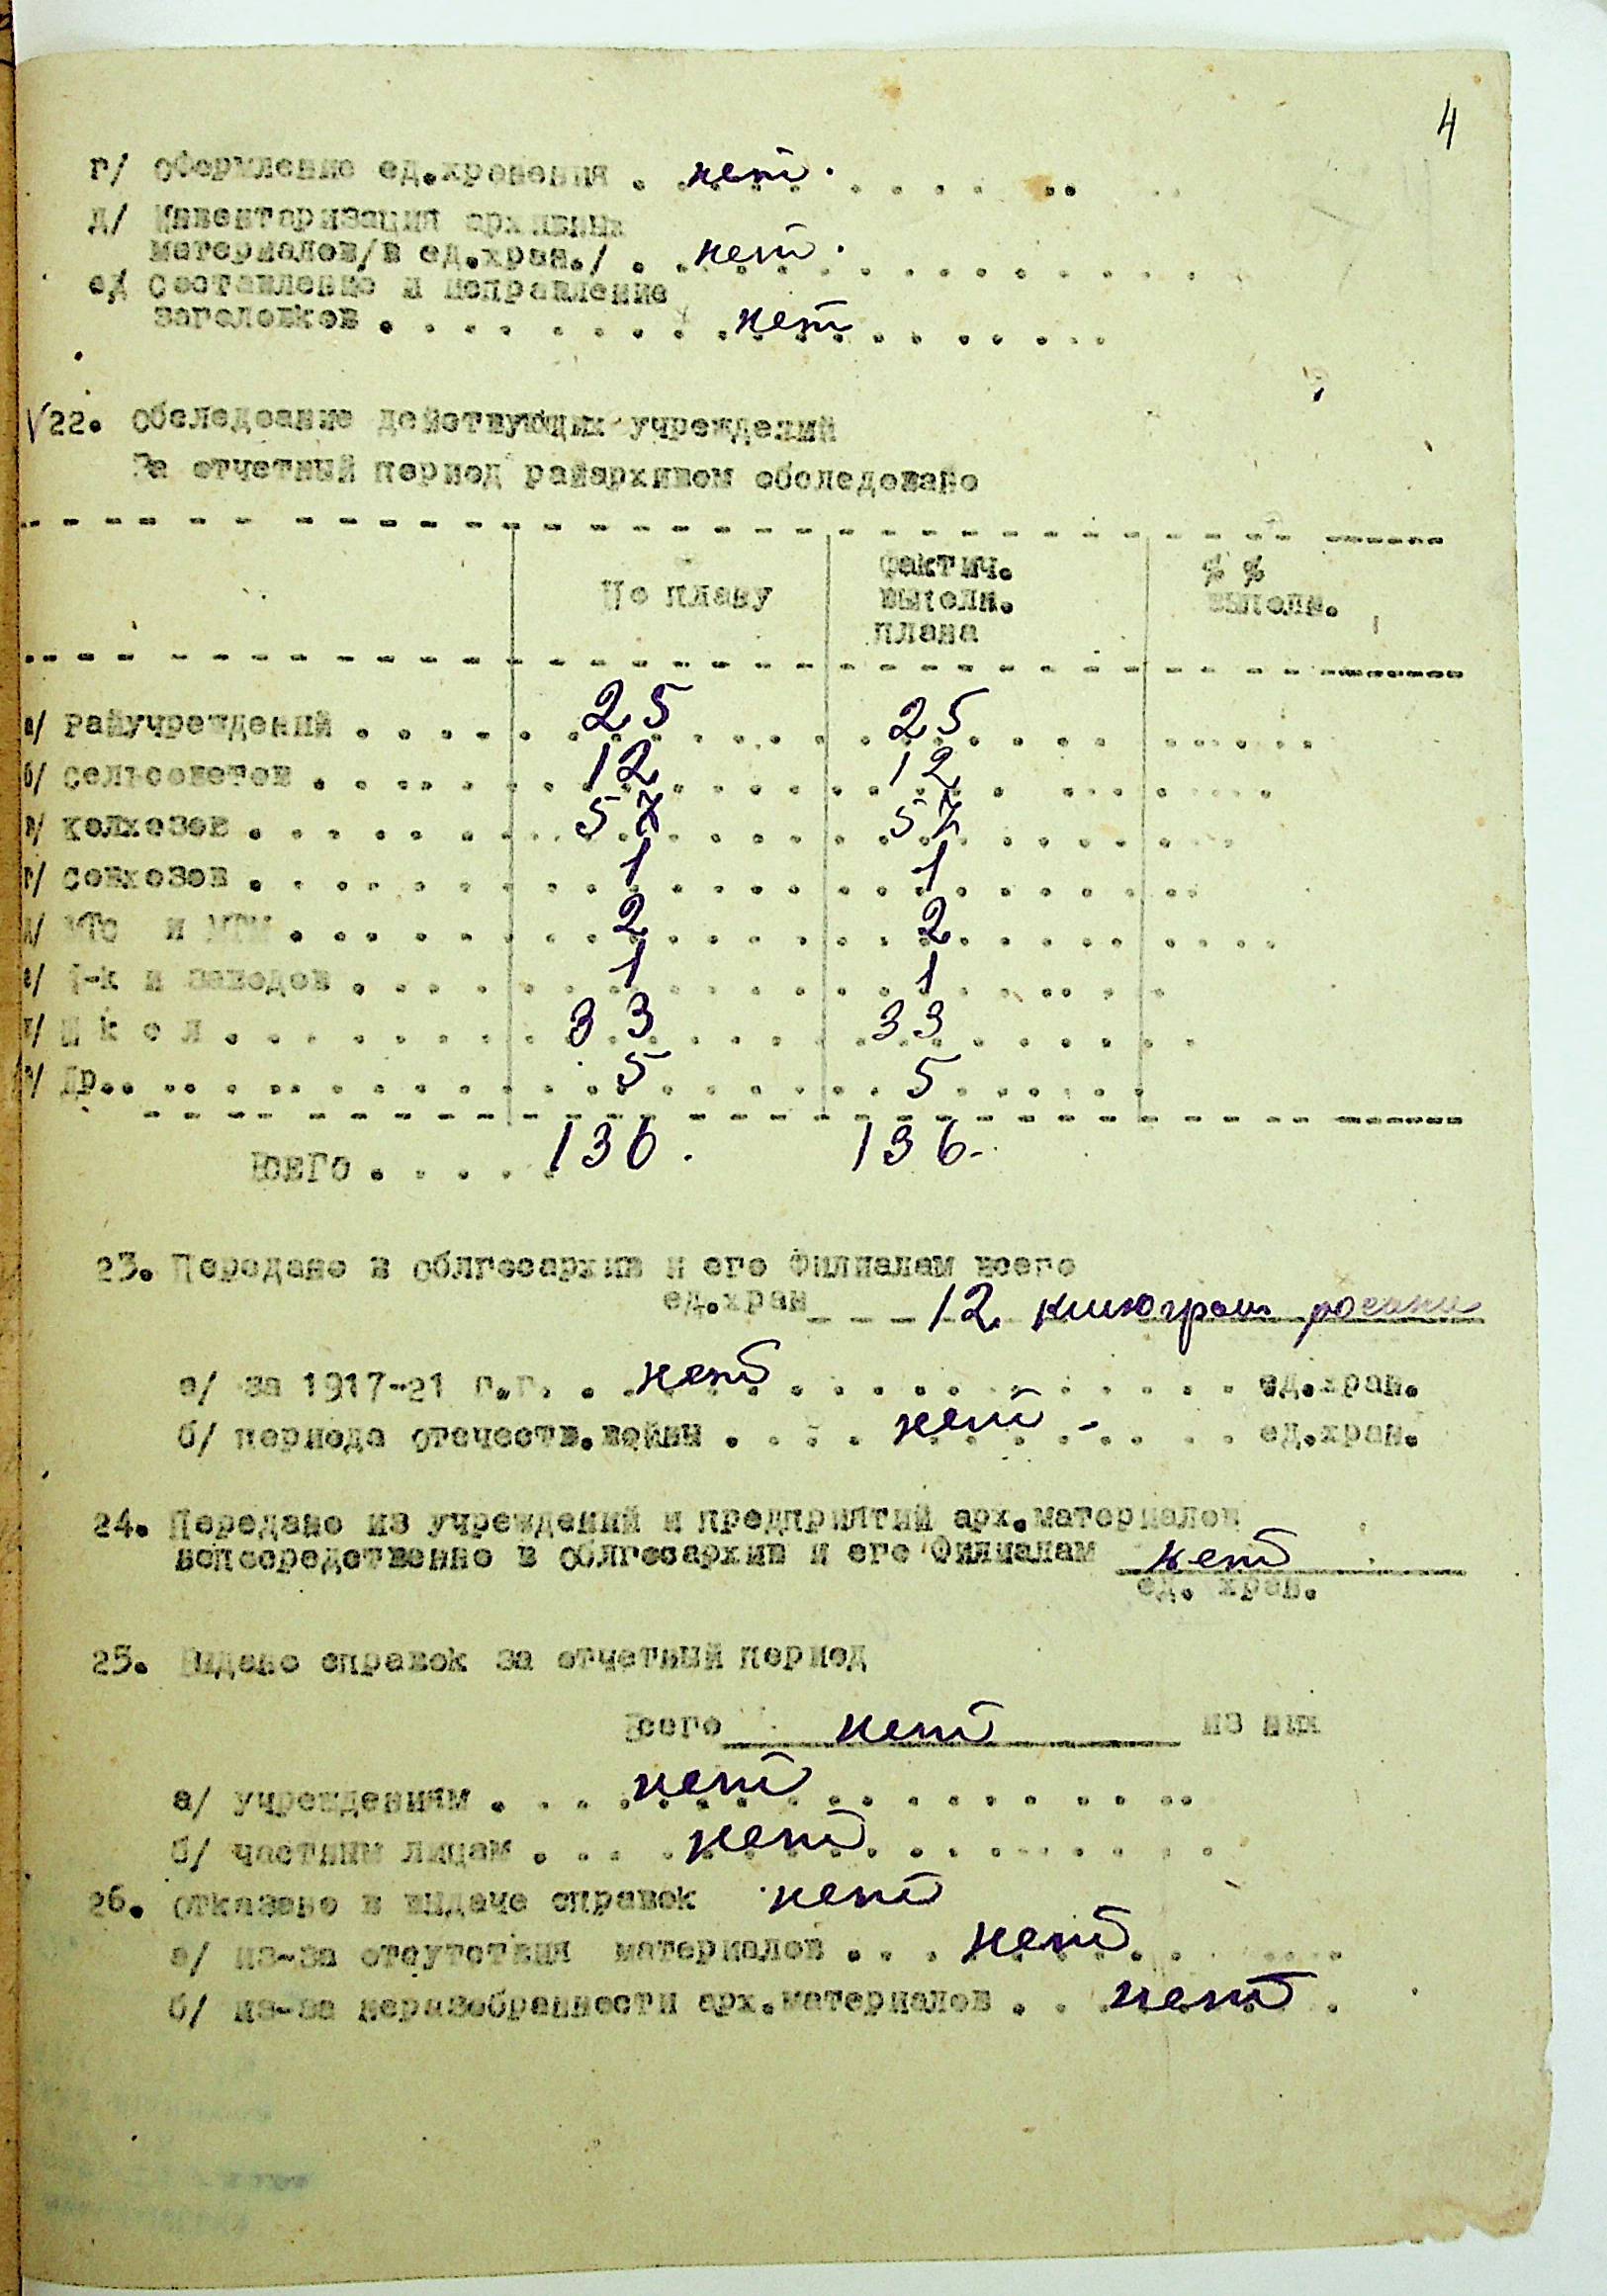 4
г/ Оформление ед.хранения . нет.
д/ Инвентаризация архивных
материалов/в ед.хран./ . нет.
е/ Составление и исправление
заголовков . . . . . . . . нет . . . . . .
√22. Обследоание действующих учреждений
За отчетный период райархивом обследовано
По плану фактич. выполн. плана % % выполн.
а/ Райучреждений . . . . . 25 25
б/ сельсоветов . . . . . 12 12
в/ колхозов . . . . . 57 57
г/ совхозов . . . . . 1 1
д/ МТС и МТМ . . . . . 2 2
е/ ф-к и заводов . . . . . 1 1
ж/ Ш к о л . . . . . 33 33
з/ Др.. . . . . . 5 5
ВСЕГО . . . . . 136. 136-
23. Передано в облгосархив и его филиалам всего
ед.хран 12 килограм
а/ за 1917-21 г.г. . нет . . . . . . . . . ед.хран.
б/ периода отечеств.войны . . . . нет - . . . ед.хран.
24. Передано из учреждений и предприятий арх.материалов
непосредственно в облгосархив и его филиалам нет
ед. хран.
25. Выдано справок за отчетный период
Всего нет из них
а/ учреждениям . . . . нет . . . . . . . . .
б/ частным лицам . . . . нет . . . . . . . .
26. Отказано в выдаче справок нет
а/ из-за отсутствия материалов . . . нет . . . . .
б/ из-за неразобранности арх.материалов . . нет .